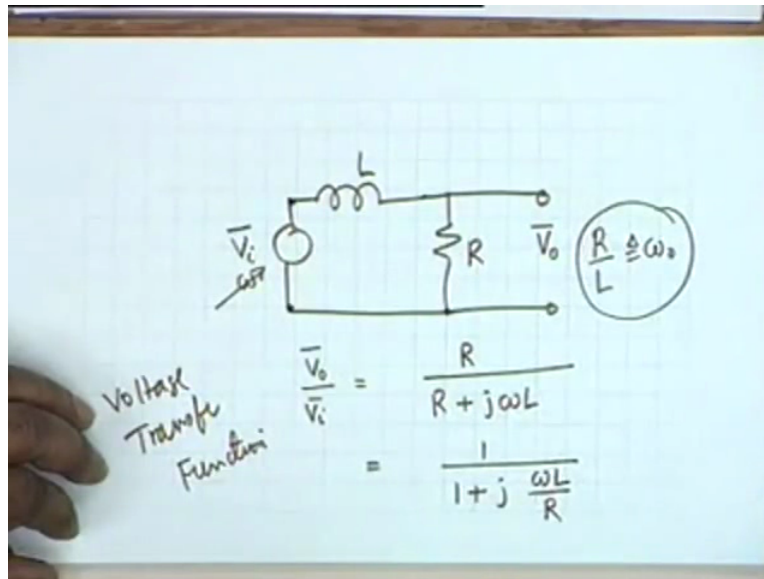 L
V̄i
R
V̄o
R/L ≜ ω₀
Voltage
Transfe
Function
V̄o/V̄i = R/(R + jωL)
= 1/(1 + j ωL/R)